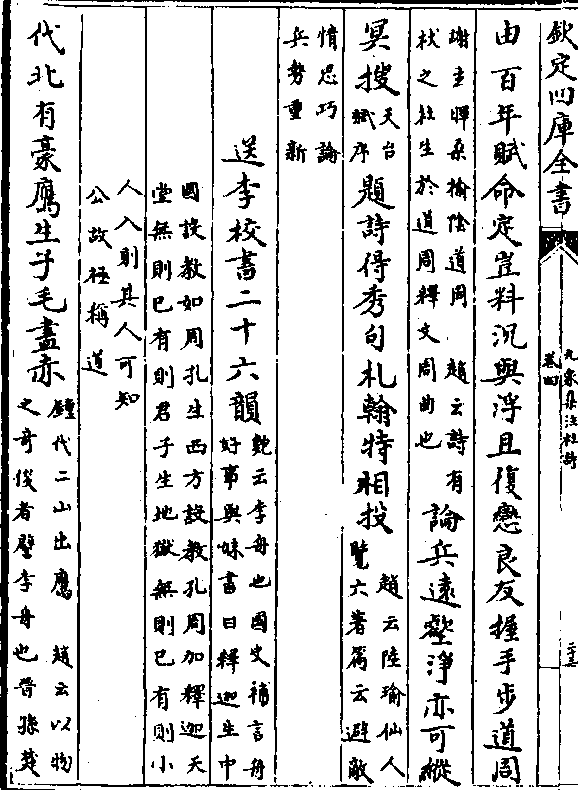 欽定四庫全書
九家集注杜詩
卷四
由百年賦命定豈料沉與浮且復戀良友握手步道周
謝玄暉桑榆陰道周 趙云詩有
杕之杜生於道周釋文周曲也
論兵遠壑淨亦可縱
冥搜
天台
賦序
題詩得秀句札翰特相投
趙云陸瑜仙人
覽六著篇云避敵
情思巧論
兵勢重新
送李校書二十六韻
鮑云李舟也國史補言舟
好事與妹書曰釋迦生中
國設教如周孔生西方設教孔周加釋迦天
堂無則已有則君子生地獄無則已有則小
人入則其人可知
公故極稱道
代北有豪鷹生子毛盡赤
鍾代二山出鷹 趙云以物
之奇俊者譬李舟也晉孫楚